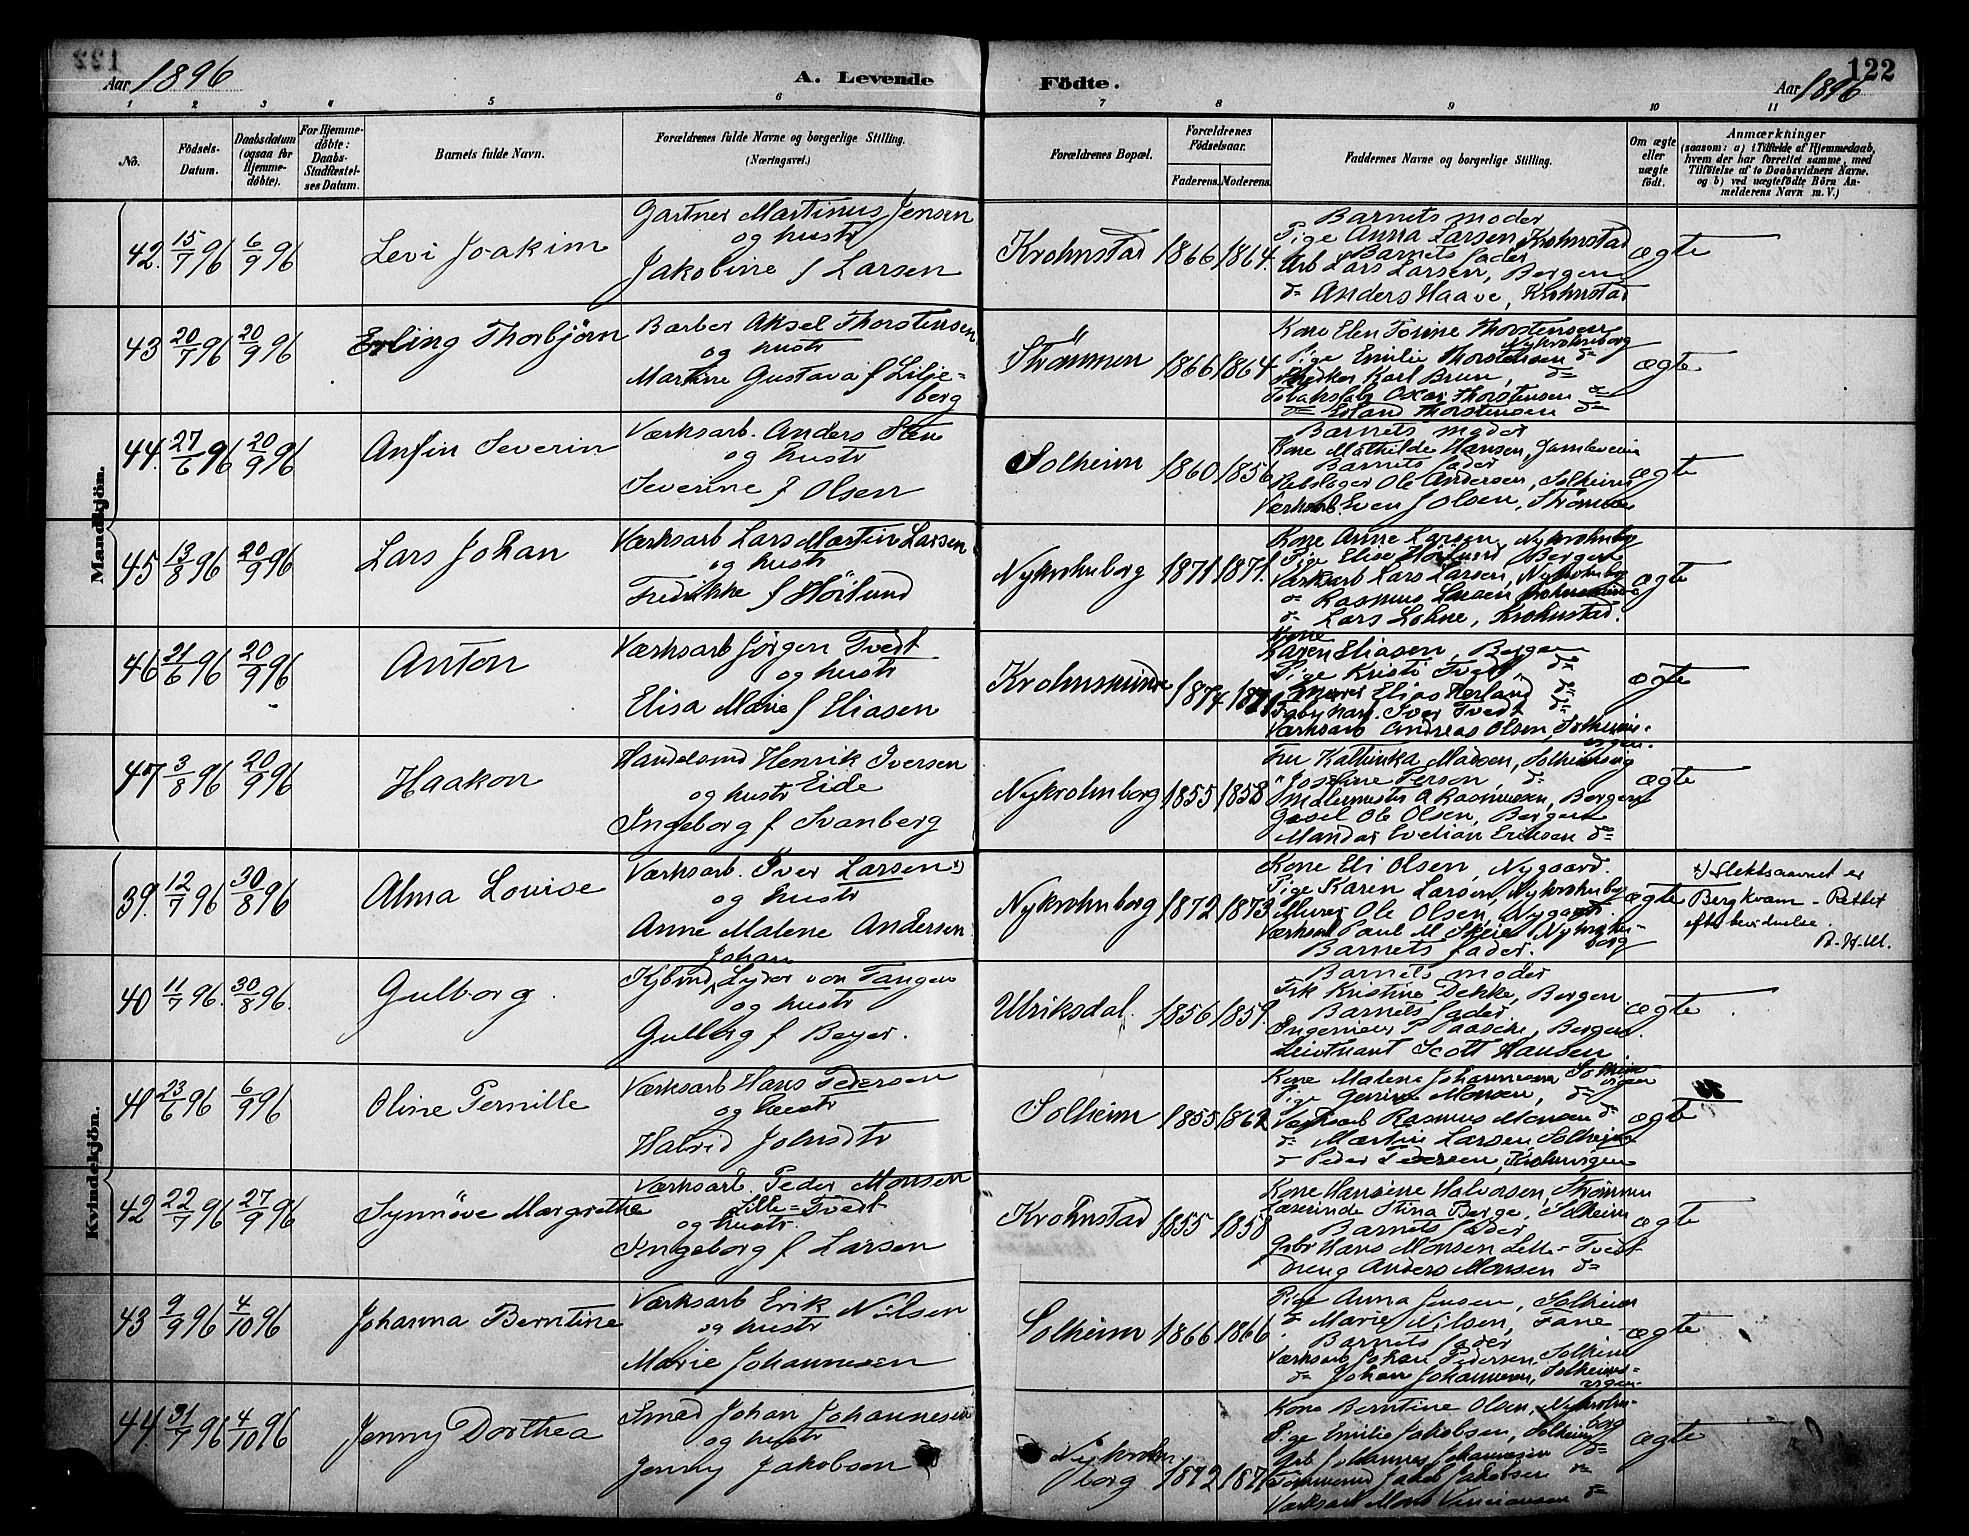 122
Aar 1896
A. Levende Födte.
Aar 1896
1 2 3 4 5 6 7 8 9 10 11
No.
Födsels-Datum.
Daabsdatum (ogsaa for Hjemme-döbte).
For Hjemme-döbte: Daabs-Stadfæstel-ses Datum.
Barnets fulde Navn.
Forældrenes fulde Navne og borgerlige Stilling. (Næringsvei.)
Forældrenes Bopæl.
Forældrenes Födselsaar.
Faderens.
Moderens.
Faddernes Navne og borgerlige Stilling.
Om ægte eller uægte födt.
Anmærkninger
(saasom: a) i Tilfælde af Hjemmedaab, hvem der har forrettet samme, med Tilföielse af to Daabsvidners Navne. og b) ved uægtefödte Börn An-melderens Navn m. V.)
Mandkjön.
42. 15/7 96 6/9 96 Levi Joakim
Gartner Martinus Jensen
og hustr
Jakobine f Larsen
Krohnstad 1866 1864.
Barnets moder
Pige Anna Larsen, Krohnstad
Barnets fader
Arb Lars Larsen, Bergen
d= Anders Haave, Krohnstad
ægte
43 20/7 96 20/9 96 Erling Thorbjörn
Barber Aksel Thorstensen
og hustr
Martine Gustava f Lilje=
berg
Strömmen 1866 1864
Kone Elen Thorstensen
Nykrohnborg
Pige Emilie Thorstensen d=
Karl Brun, d=
Oscar Thorstensen d=
d= Erland Thorstensen d=
ægte
44. 27/6 96 20/9 96 Anfin Severin
Værksarb. Anders
og hustr
Severine f Olsen
Solheim 1860 1856
Barnets moder
Kone Mathilde Hansen,
Barnets fader
Rebslager Ole Andersen, Solheim
Værksarb. Even J Olsen, Strömmen
ægte
45 13/8 96 20/9 96 Lars Johan
Værksarb Lars Martin Larsen
og hustr
Fredrikke f Hörlund
Nykrohnborg 1871 1871.
Kone Anne Larsen, Nykrohnborg
Pige Elise Hörlund Bergen
Værksarb Lars Larsen, Nykrohnborg
d= Rasmus Larsen
d= Lars Lohne, Krohnstad.
ægte
46 21/6 96 20/9 96 Anton
Værksarb Jörgen Tvedt
og hustr
Elisa Marie f Eliasen
Krohnsminde 1874
Kone
Karen Eliasen, Bergen
Pige Kristi Tvedt, d=
Murer Elias Herland d=
Iver Tvedt d=
Værksarb Andreas Olsen, Solheims-
vigen.
ægte
47 3/8 96 20/9 96 Haakon
Handelsmd Henrik Iversen
og hustr Eide
Ingeborg f Svanberg
Nykrohnborg 1855 1858
Fru Kathinka Madsen, Solheimsvig
" Josefine Person, d=
Malermester A Rasmussen, Bergen
Ole Olsen, Bergen
Evelian Eriksen d=
ægte
Kvindekjön.
39. 12/7 96 30/8 96 Alma Lovise
Værksarb. Iver Larsen x)
og hustr
Anne Malene Andersen
Nykrohnborg 1872 1873
Kone Eli Olsen, Nygaard.
Pige Karen Larsen, Nykrohnborg
Murer Ole Olsen, Nygaard.
Værksarb Paul M Skeie, Nykrohn-
borg
Barnets fader.
ægte
x) Slektsnavnet er
Bergkvam - Rettet
efter bevidnelse.
40 11/7 96. 30/8 96. Gulborg.
Johan
Kjbmd Lyder von Tangen
og hustr
Gulborg f Beyer.
Ulriksdal. 1856 1859
Barnets moder
Frk Kristine Dekke, Bergen
Barnets fader
Ingeniör P Paasche, Bergen.
Leieutnant Scott Hansen
ægte
41 23/6 96 6/9 96 Oline Pernille
Værksarb Hans Pedersen
og hustr
Halvid Johnsdtr
Solheim 1855 1862
Kone Malene Johannesen Solheims
vigen
Pige Monsen, d=
Værksarb Rasmus Monsen d=
d= Martin Larsen Solheim
d= Peder Pedersen,
ægte
42 22/7 96 27/9 96 Synnöve Margrethe
Værksarb Peder Monsen
Lille=Tvedt
og hustr.
Ingeborg f Larsen
Krohnstad 1855 1858
Kone Hansine Halvorsen, Strömmen
Læreinde Stina Berge, Solheim
Barnets fader
Gbr Hans Monsen Lille-Tvedt
Dreng Anders Monsen d=
ægte
43 9/9 96 4/10 96 Johanna Berntine
Værksarb Erik Nilsen
og hustr
Marie Johannesen
Solheim 1866 1866
Pige Anna Jensen, Solheim
d= Marie Nilsen, Fane
Barnets fader
Værksarb Johan Pedersen Solheim
d= Johan Johannesen, Solheims-
vigen
ægte
44. 31/7 96 4/10 96 Jenny Dorthea
Smed Johan Johannesen
og hustr
Jenny Jakobsen
Nykrohn
borg 1872
Kone Berntine Olsen, Nykrohn-
borg
Pige Emilie Jakobsen, Solheim
Arb Johannes Johannesen d=
Tömmermd Jakob Jakobsen d=
Værksarb Mons d=
ægte